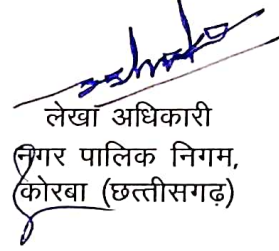 लेखा अधिकारी
नगर पालिक निगम,
कोरबा (छत्तीसगढ़)